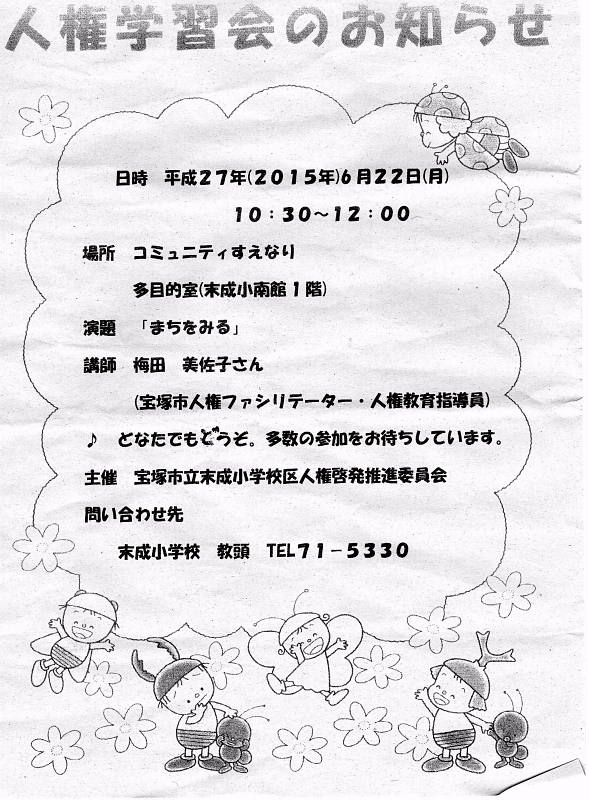 人権学習会のお知らせ
日時　平成２７年(２０１５年)６月２２日(月)
１０：３０～１２：００
場所　コミュニティすえなり
多目的室(末成小南館１階)
演題　「まちをみる」
講師　梅田　美佐子さん
(宝塚市人権ファシリテーター・人権教育指導員)
♪　どなたでもどうぞ。多数の参加をお待ちしています。
主催　宝塚市立末成小学校区人権啓発推進委員会
問い合わせ先
末成小学校　教頭　TEL７１－５３３０